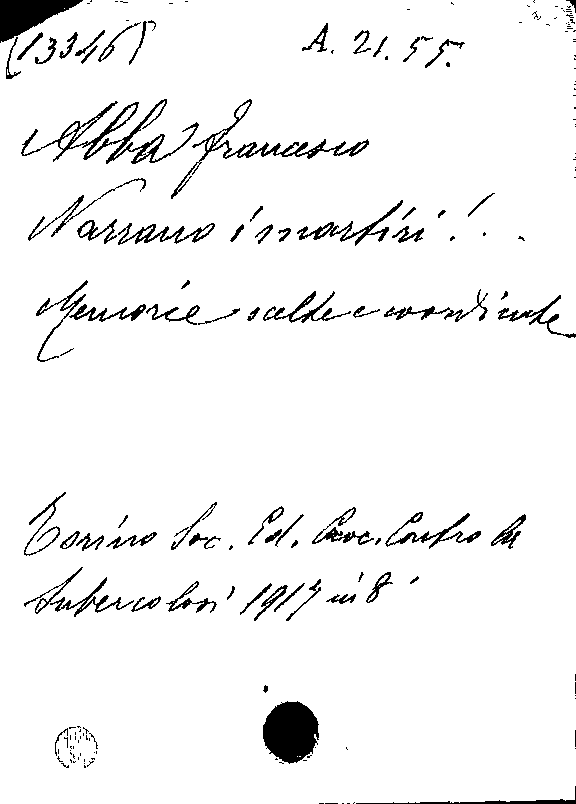 (13346)
A. 21. 55.
Abba Francesco
Narrano i martiri! . .
Memorie scelte e coordinate
Torino Soc. Ed. Croc. Contro la
tubercolosi 1917 in 8°